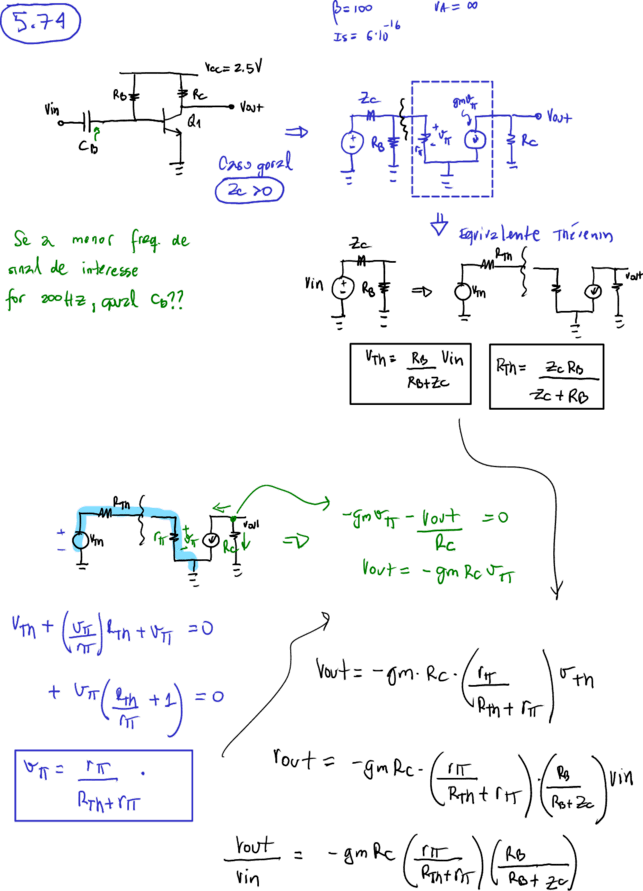 5.74
β=100 VA = ∞
Is = 6·10^-16
Vcc = 2.5V
RB Rc
Vin Vout
CB Q1
⇒
Caso geral
Zc > 0
Zc gmvπ Vout
RB rπ + vπ - Rc
Se a menor freq. de
sinal de interesse
for 200HZ, qual CB??
⇓ Equivalente Thévenin
Zc RTh
Vin RB ⇒ VTh Vout
VTh = RB/(RB+Zc) Vin
RTh = Zc RB/(Zc + RB)
RTh
+ - VTh rπ + vπ - Rc Vout ⇒
-gmvπ - Vout/Rc = 0
Vout = -gm Rc vπ
VTh + (vπ/rπ) RTh + vπ = 0
+ vπ (RTh/rπ + 1) = 0
vπ = rπ/(RTh + rπ) ·
Vout = -gm · Rc · (rπ/(RTh + rπ)) vth
Vout = -gm Rc · (rπ/(RTh + rπ)) · (RB/(RB + Zc)) Vin
Vout/Vin = -gm Rc (rπ/(RTh + rπ)) (RB/(RB + Zc))